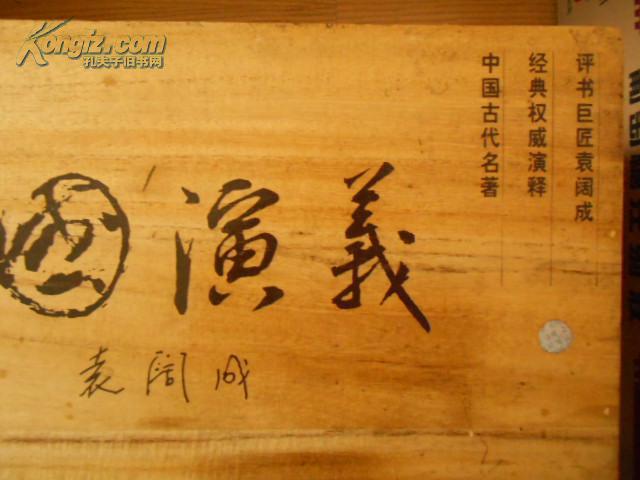 Kongfz.com
孔夫子旧书网
评书巨匠袁阔成
经典权威演释
中国古代名著
国演义
袁阔成